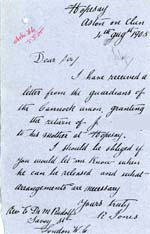 Hopesay
Aston on Clun
4th Augst 1905
Dear Sir,
I have received a
letter from the guardians of
the Cannock union, granting
the return of
to his mother at Hopesay.
I should be obliged if
you would let me know when
he can be released and what
arrangements are necessary
Yours truly
R Jones
Rev. E. De M Rudolf
Savoy St
London W.C